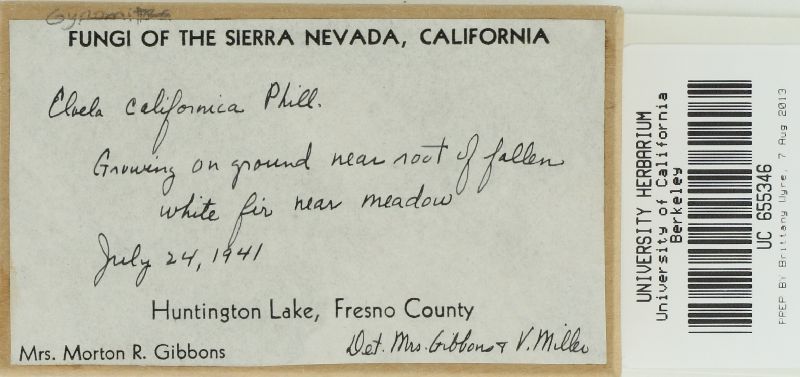 Gyromitra
FUNGI OF THE SIERRA NEVADA, CALIFORNIA
Elvela californica Phill.
Growing on ground near root of fallen
white fir near meadow
July 24, 1941
Huntington Lake, Fresno County
Mrs. Morton R. Gibbons
Det. Mrs. Gibbons & V. Miller
UNIVERSITY HERBARIUM
University of California
Berkeley
UC 655346
PREP BY Brittany Uyre, 7 Aug 2013